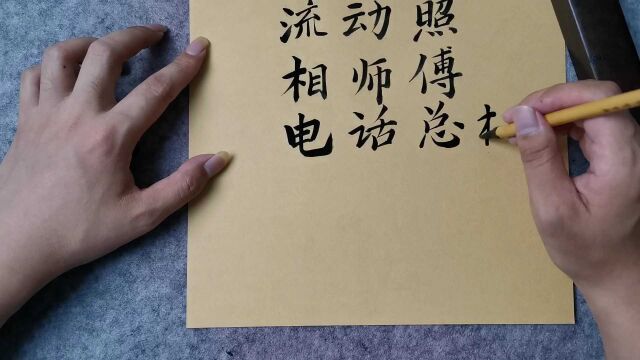 流动照
相师傅
电话总